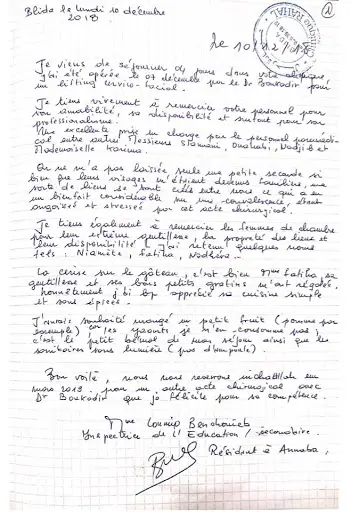 Blida le lundi 10 décembre
2018
le 10/12/18
Je viens de séjourner 04 jours dans votre clinique,
j'ai été opérée le 07 décembre par le Dr Boukadir pour
un lifting cervico-facial.
Je tiens vivement à remercier votre personnel pour
son amabilité, sa disponibilité et surtout pour son
professionnalisme.
Une excellente prise en charge par le personnel
cal entre autres Messieurs Slamani, Ouahabi, Nadjib et
Mademoiselle Karima.
On ne m'a pas laissée seule une petite seconde si
bien que leurs visages m'étaient devenus familiers, une
sorte de liens se sont créés entre nous ce qui a eu
un bienfait considérable sur ma convalescence, étant
angoissée et stressée par cet acte chirurgical.
Je tiens également à remercier les femmes de chambre
pour leur extrême gentillesse, la propreté des lieux et
leur disponibilité. J'ai retenu quelques noms
tels : Fatiha,
La cerise sur le gâteau, c'est bien Mme Fatiha, sa
gentillesse et ses bons petits gratins m'ont régalée,
honnêtement j'ai bcp apprécié sa cuisine simple
et sans épices.
J'aurais souhaité mangé un petit fruit (pomme par
exemple) car les yaourts je n'en consomme pas,
c'est le petit bémol de mon séjour ainsi que les
sanitaires sans lumière (pas d'ampoule).
Bon voilà, nous nous reverrons inchallah en
mars 2019 pour un autre acte chirurgical avec
Dr Boukadir que je félicite pour sa compétence.
Mme Benchaieb
Inspectrice de l'Education / secondaire.
Résident à Annaba,